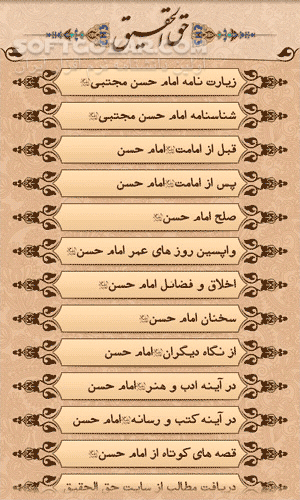 حق الحقیق
SOFTGOZAR.COM
زیارت نامه امام حسن مجتبی
شناسنامه امام حسن مجتبی
قبل از امامت امام حسن
پس از امامت امام حسن
صلح امام حسن
واپسین روز های عمر امام حسن
اخلاق و فضائل امام حسن
سخنان امام حسن
از نگاه دیگران امام حسن
در آینه ادب و هنر امام حسن
در آینه کتب و رسانه امام حسن
قصه های کوتاه از امام حسن
دریافت مطالب از سایت حق الحقیق